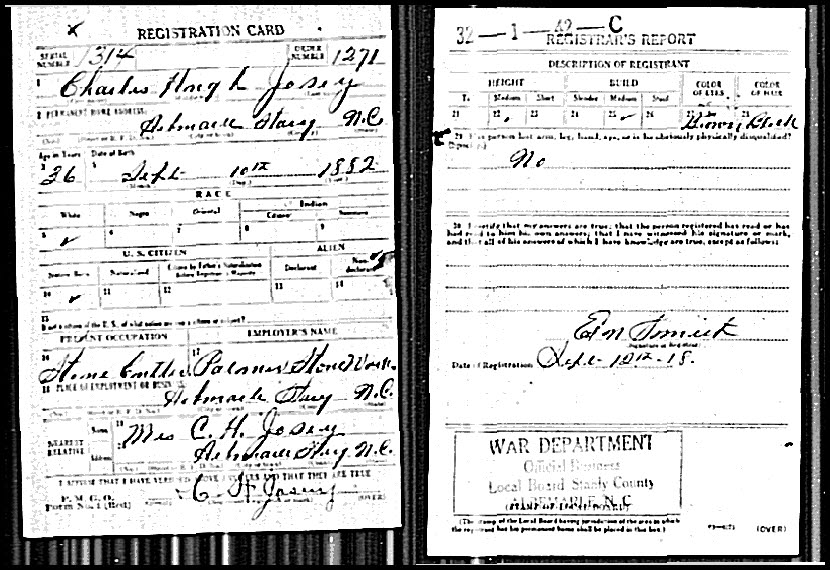 REGISTRATION CARD
SERIAL NUMBER 1314 ORDER NUMBER 1271
1 Charles Hough Josey
2 PERMANENT HOME ADDRESS:
Albemarle Stany N.C.
Age in Years Date of Birth
36 Sept 10th 1882
RACE
White Negro Oriental Indian
Citizen Noncitizen
5 ✓ 6 7 8 9
U. S. CITIZEN ALIEN
Native Born Naturalized Citizen by Father's Naturalization Before Registrant's Majority Declarant Non-declarant
10 ✓ 11 12 13 14
15
If not a citizen of the U. S., of what nation are you a citizen or subject?
PRESENT OCCUPATION EMPLOYER'S NAME
16 17
Stone Cutter Palmer Stone Works
18 PLACE OF EMPLOYMENT OR BUSINESS:
Albemarle Stany N.C.
NEAREST RELATIVE
Name 19 Mrs C. H. Josey
Address Albemarle Stany N.C.
I AFFIRM THAT I HAVE VERIFIED ABOVE ANSWERS AND THAT THEY ARE TRUE
P. M. G. O.
Form No. 1 (Red) C H Josey (OVER)
32—1—42—C
REGISTRAR'S REPORT
DESCRIPTION OF REGISTRANT
HEIGHT BUILD COLOR OF EYES COLOR OF HAIR
Tall Medium Short Slender Medium Stout
21 22 23 24 25 ✓ 26 27 Brown 28 Black
29 Has person lost arm, leg, hand, eye, or is he obviously physically disqualified?
No
30. I certify that my answers are true; that the person registered has read or has
had read to him his own answers; that I have witnessed his signature or mark,
and that all of his answers of which I have knowledge are true, except as follows:
Date of Registration Sept 12th - 18.
WAR DEPARTMENT
Official Business
Local Board Stanly County
ALBEMARLE, N. C.
(STAMP OF LOCAL BOARD)
(The stamp of the Local Board having jurisdiction of the area in which
the registrant has his permanent home shall be placed in this box.)
(OVER)